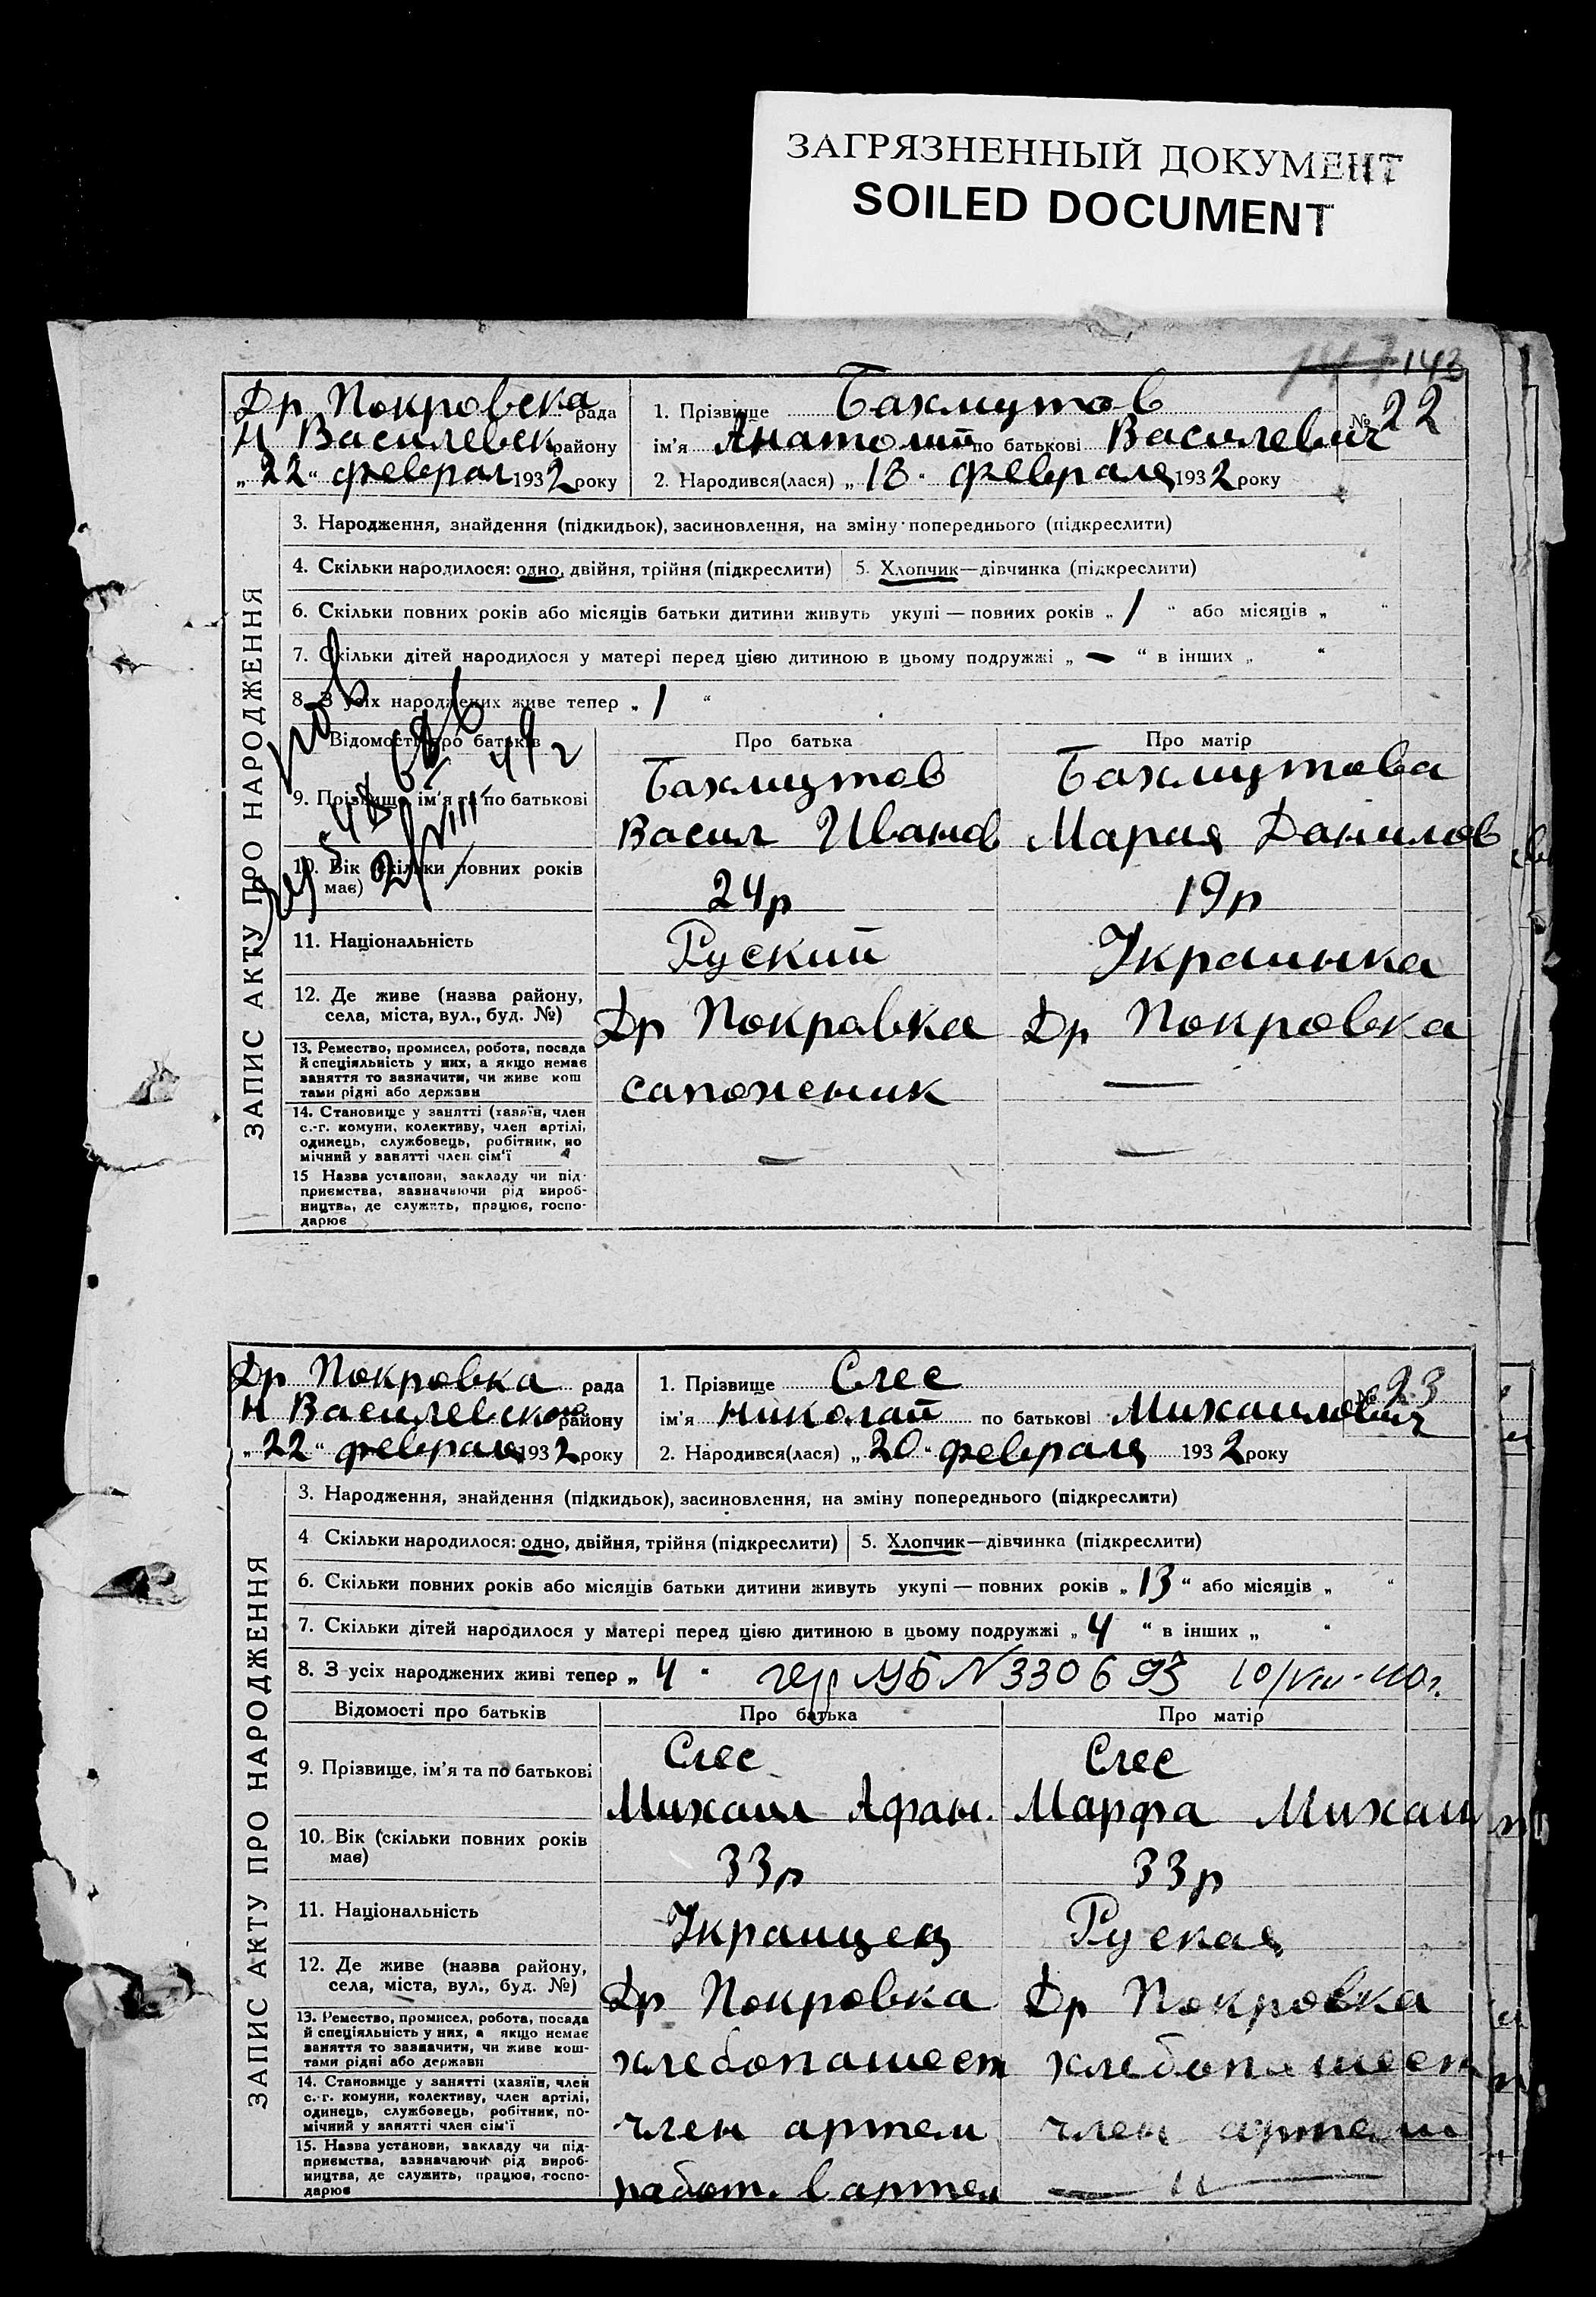 ЗАГРЯЗНЕННЫЙ ДОКУМЕНТ
SOILED DOCUMENT
143
Др Покровска рада
Н Василевск району
„22“ феврал 1932 року
1. Прізвище Бахмутов
№ 22
ім'я Анатолий по батькові Василевич
2. Народився(лася) „13“ февраля 1932 року
ЗАПИС АКТУ ПРО НАРОДЖЕННЯ
3. Народження, знайдення (підкидьок), засиновлення, на зміну попереднього (підкреслити)
4. Скільки народилося: одно, двійня, трійня (підкреслити) 5. Хлопчик—дівчинка (підкреслити)
6. Скільки повних років або місяців батьки дитини живуть укупі — повних років „ 1 “ або місяців „ “
7. Скільки дітей народилося у матері перед цією дитиною в цьому подружжі „ — “ в інших „ “
8. З усіх народжених живе тепер „ 1 “
Відомості про батьків Про батька Про матір
9. Прізвище, ім'я та по батькові
Бахмутов Бахмутова
Васил Иванов Мария Данилов
10. Вік (скільки повних років має)
24р 19р
11. Національність Руский Украинка
12. Де живе (назва району,
села, міста, вул., буд. №)
Др Покровка Др Покровка
13. Ремество, промисел, робота, посада
й спеціяльність у них, а якщо немає
заняття то зазначити, чи живе кош
тами рідні або держави
сапоженик —
14. Становище у занятті (хазяїн, член
с.-г. комуни, колективу, член артілі,
одинець, службовець, робітник, по
мічний у занятті член сім'ї
— —
15 Назва установи, закладу чи під-
приємства, зазначаючи рід вироб-
ництва, де служить, працює, госпо-
дарює
Др Покровка рада
Н Василевского району
„22“ февраля 1932 року
1. Прізвище Слес
№ 23
ім'я Николай по батькові Михаилович
2. Народився(лася) „20“ февраля 1932 року
ЗАПИС АКТУ ПРО НАРОДЖЕННЯ
3. Народження, знайдення (підкидьок), засиновлення, на зміну попереднього (підкреслити)
4 Скільки народилося: одно, двійня, трійня (підкреслити) 5. Хлопчик—дівчинка (підкреслити)
6. Скільки повних років або місяців батьки дитини живуть укупі — повних років „ 13 “ або місяців „ “
7. Скільки дітей народилося у матері перед цією дитиною в цьому подружжі „ 4 “ в інших „ “
8. З усіх народжених живі тепер „ 4 “ N 330693
Відомості про батьків Про батька Про матір
9. Прізвище, ім'я та по батькові
Слес Слес
Михаил Афан. Марфа Михаи
10. Вік (скільки повних років
має)
33р 33р
11. Національність Украицец Руская
12. Де живе (назва району,
села, міста, вул., буд. №)
Др Покровка Др Покровка
13. Ремество, промисел, робота, посада
й спеціяльність у них, а якщо немає
заняття то зазначити, чи живе кош-
тами рідні або держави
хлебопашест хлебопашест
14. Становище у занятті (хазяїн, член
с.-г. комуни, колективу, член артілі,
одинець, службовець, робітник, по-
мічний у занятті член сім'ї
член артели член артели
15. Назва установи, закладу чи під-
приємства, зазначаючи рід вироб-
ництва, де служить, працює, госпо-
дарює
работ. в артел — 〃 —